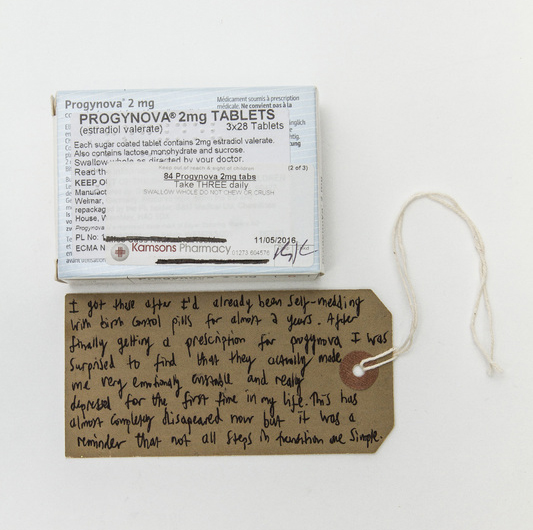 Progynova® 2 mg
Médicament soumis à prescription
médicale. Ne convient pas à la
PROGYNOVA® 2mg TABLETS
(estradiol valerate) 3x28 Tablets
Each sugar coated tablet contains 2mg estradiol valerate.
Also contains lactose monohydrate and sucrose.
Swallow whole as directed by your doctor.
Keep out of reach & sight of children
Read th (2 of 3)
84 Progynova 2mg tabs
KEEP O
Take THREE daily
Manufact
SWALLOW WHOLE DO NOT CHEW OR CRUSH
Weimar,
repackag
House, W
Progynova
PL No: 1 11/05/2016
ECMA N Kamsons Pharmacy 01273
I got these after I'd already been self-medding
with birth control pills for almost 2 years. After
finally getting a prescription for progynova I was
surprised to find that they actually made
me very emotionally unstable and really
depressed for the first time in my life. This has
almost completely disapeared now but it was a
reminder that not all steps in transition are simple.